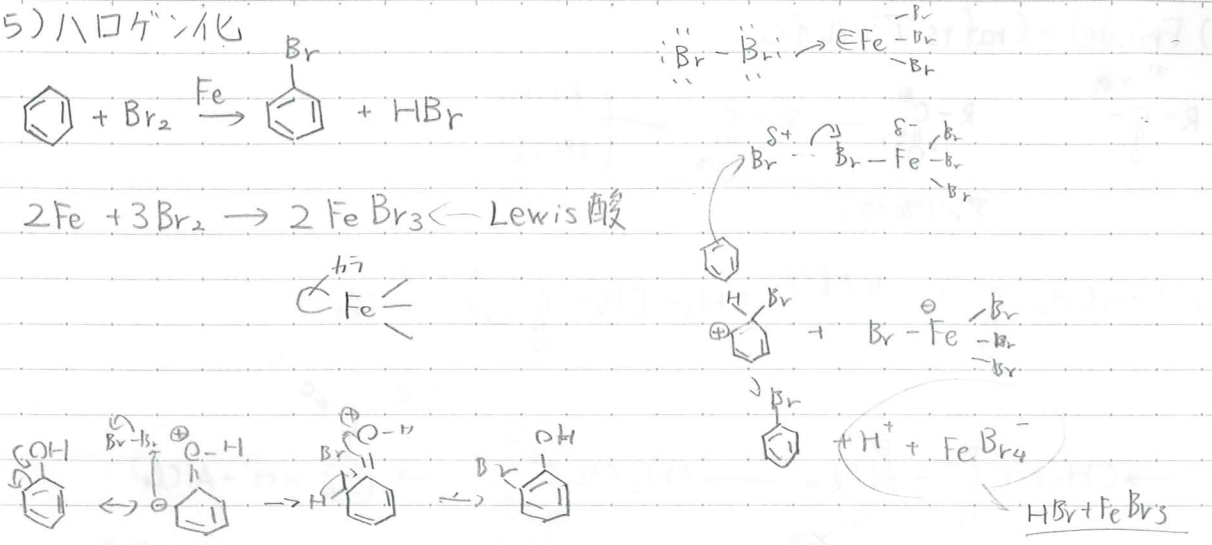 5)ハロゲン化
Br
+ Br₂ Fe → + HBr
2Fe + 3Br₂ → 2FeBr₃ ← Lewis酸
カラ
Fe
OH Br-Br ⊕ O-H ⊖ ↔ → ⊕ O-H Br H → OH Br
Br - Br → Fe -Br -Br -Br
Br δ+ ... Br - Fe δ- Br -Br Br
H Br ⊕ + Br - Fe ⊖ Br -Br -Br
Br
+ H⁺ + FeBr₄⁻
HBr + FeBr₃